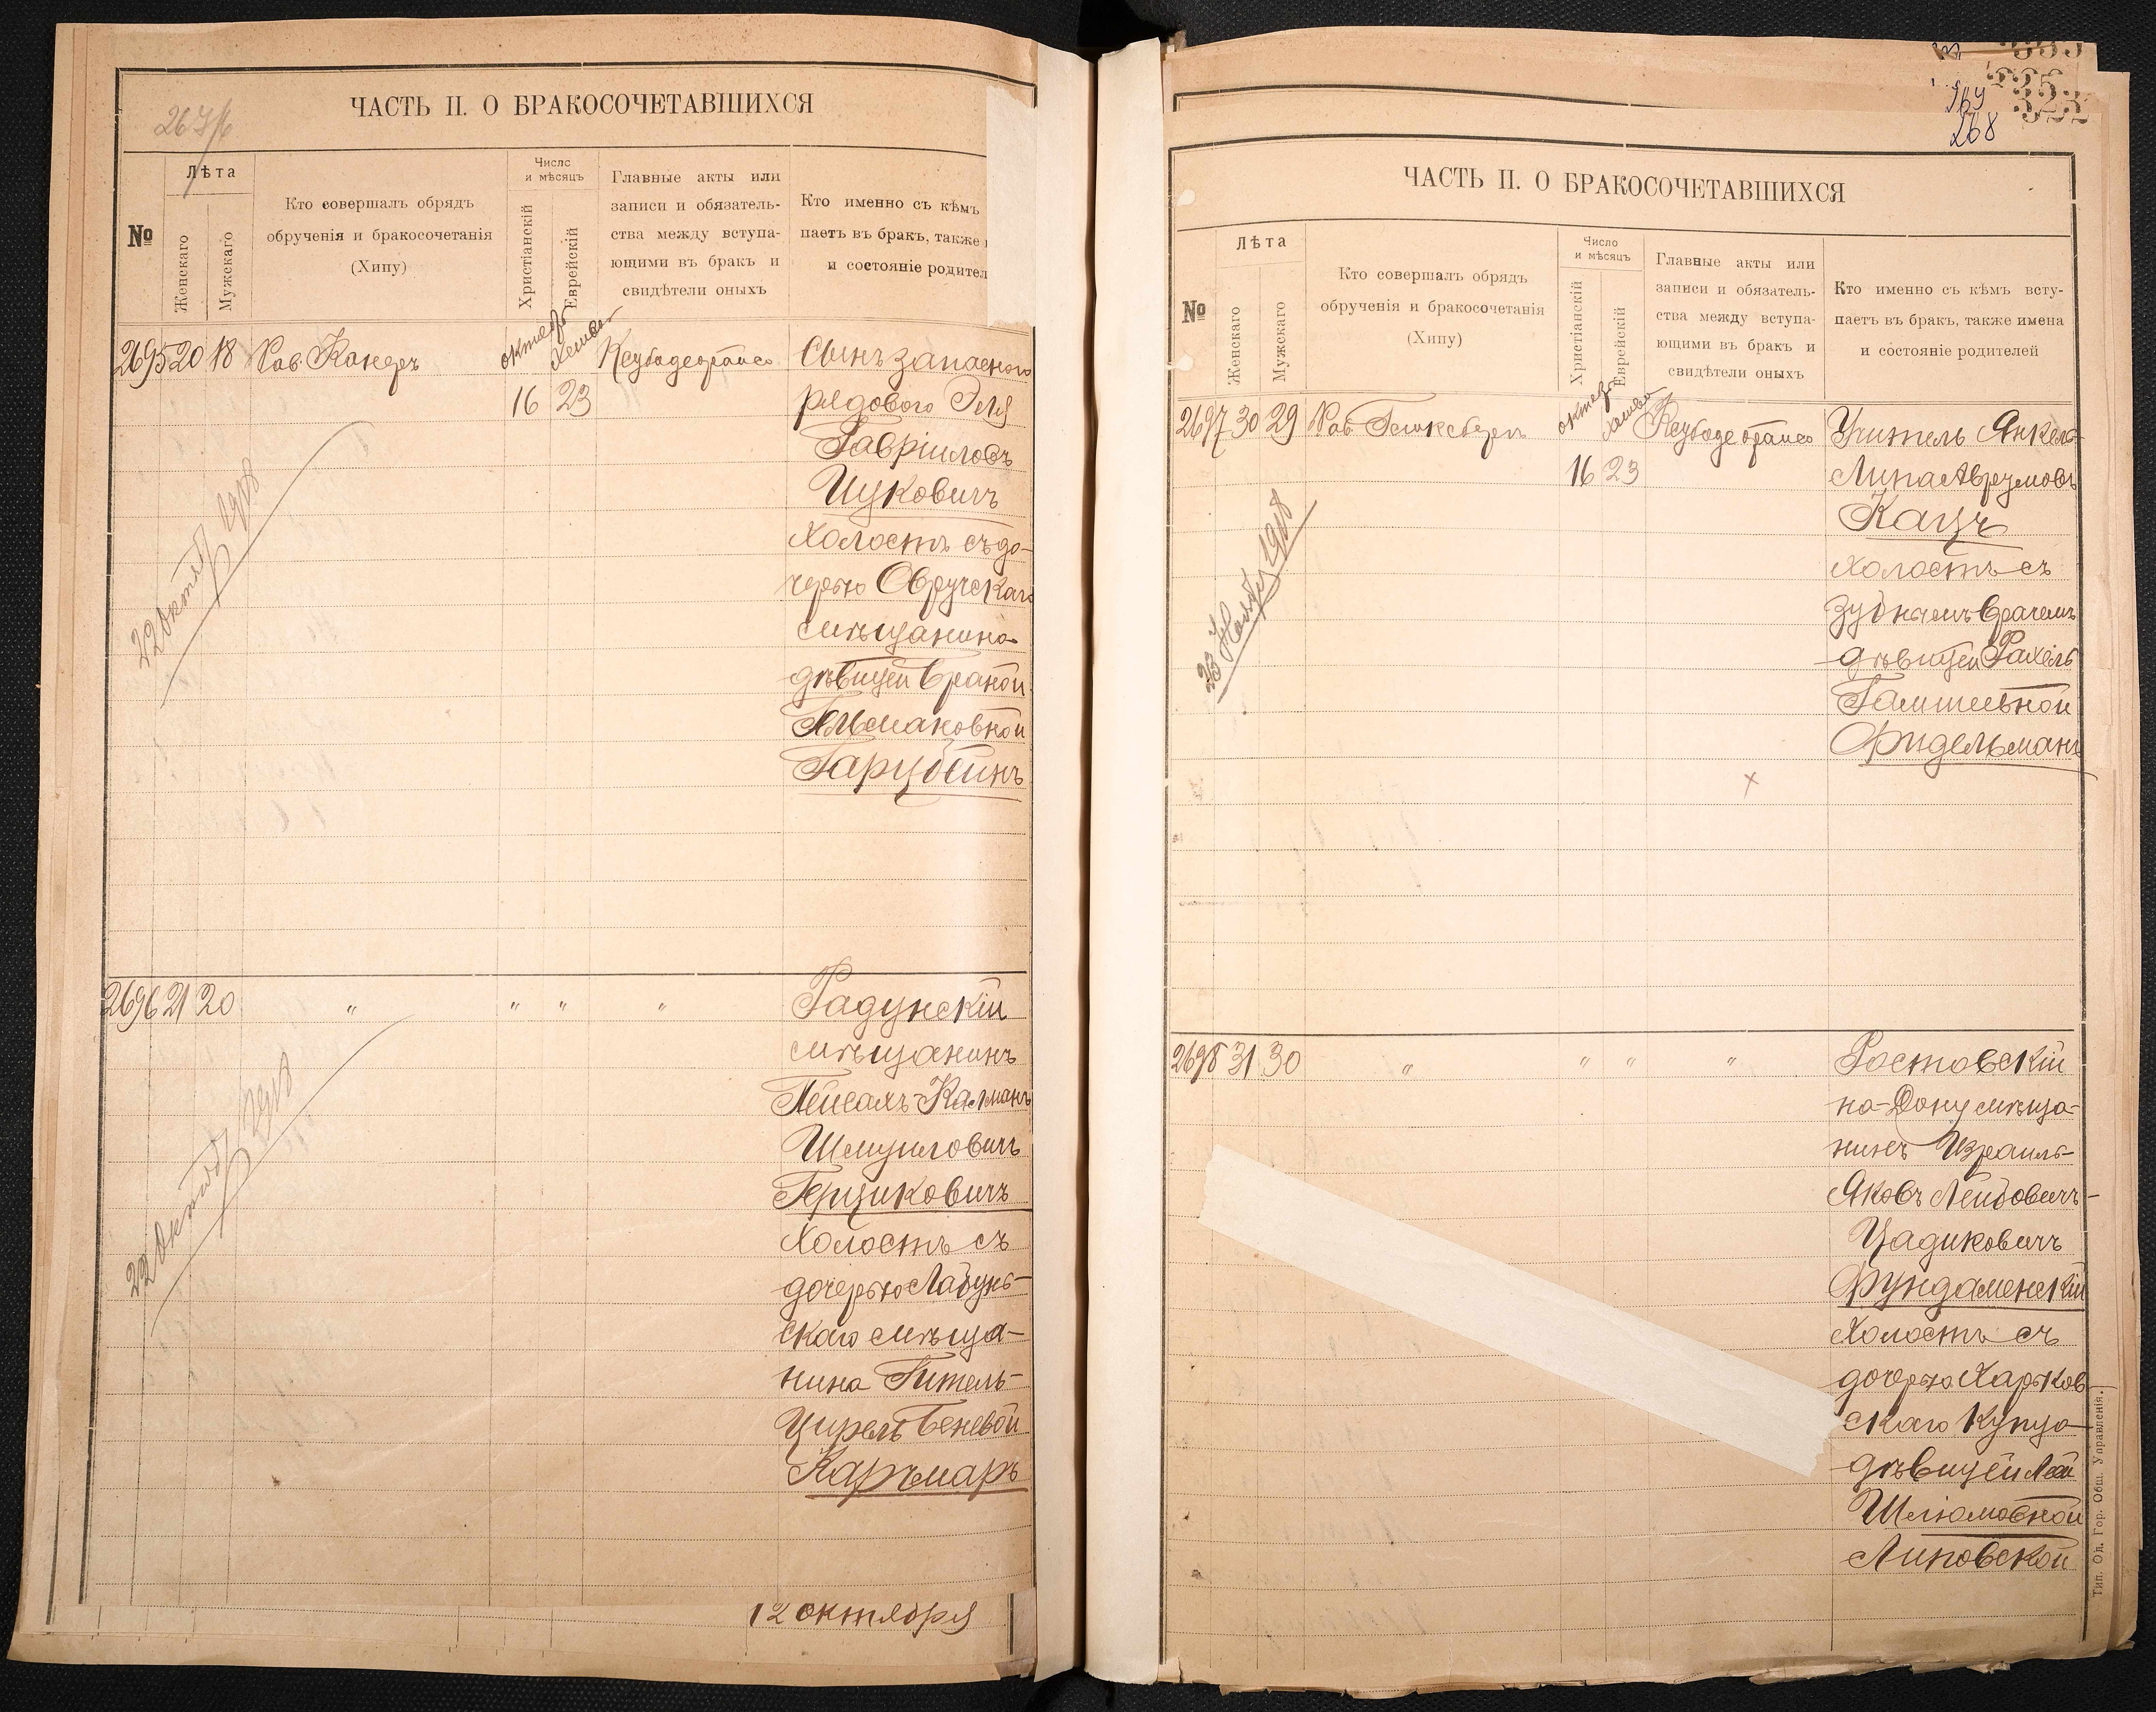 ЧАСТЬ II. О БРАКОСОЧЕТАВШИХСЯ
№
Лѣта
Женскаго
Мужскаго
Кто совершалъ обрядъ
обрученія и бракосочетанія
(Хипу)
Число
и мѣсяцъ
Христіанскій
Еврейскій
Главные акты или
записи и обязатель-
ства между вступа-
ющими въ бракъ и
свидѣтели оныхъ
Кто именно съ кѣмъ
паетъ въ бракъ, также
и состояніе родител
2695 20 18 Рав.
16 23
Сынъ запасного
рядового Эля
Гавріиловъ
Ицковичъ
холостъ съ до-
черью Овручскаго
мѣщанина
дѣвицей Браной
Гарубинъ
22 Октяб 1918
2696 21 20 " " " "
Радунскій
мѣщанинъ
Пейсахъ-Калманъ
Шмуиловичъ
Герциковичъ
холостъ съ
дочерью Лабунь-
скаго мѣща-
нина Гитель-
Цирель Беневой
Каръмаръ
22 Октяб 1918
12 октября
268
ЧАСТЬ II. О БРАКОСОЧЕТАВШИХСЯ
№
Лѣта
Женскаго
Мужскаго
Кто совершалъ обрядъ
обрученія и бракосочетанія
(Хипу)
Число
и мѣсяцъ
Христіанскій
Еврейскій
Главные акты или
записи и обязатель-
ства между вступа-
ющими въ бракъ и
свидѣтели оныхъ
Кто именно съ кѣмъ всту-
паетъ въ бракъ, также имена
и состояніе родителей
2697 30 29 Рав.
16 23
Учитель Янкель-
Липа Аврумовъ
Кацъ
холостъ съ
зубнымъ врачемъ
дѣвицей Рахель
Фридельманъ
23 Нояб 1918
2698 31 30 " " " "
Ростовскій
на-Дону мѣща-
нинъ Израиль-
Яковъ Лейбовичъ-
Цадиковичъ
Фундаменскій
холостъ съ
дочерью Харьков
скаго купца
дѣвицей Леей
Шлюмовной
Липовской
Тип. Од. Гор. Общ. Управленія.